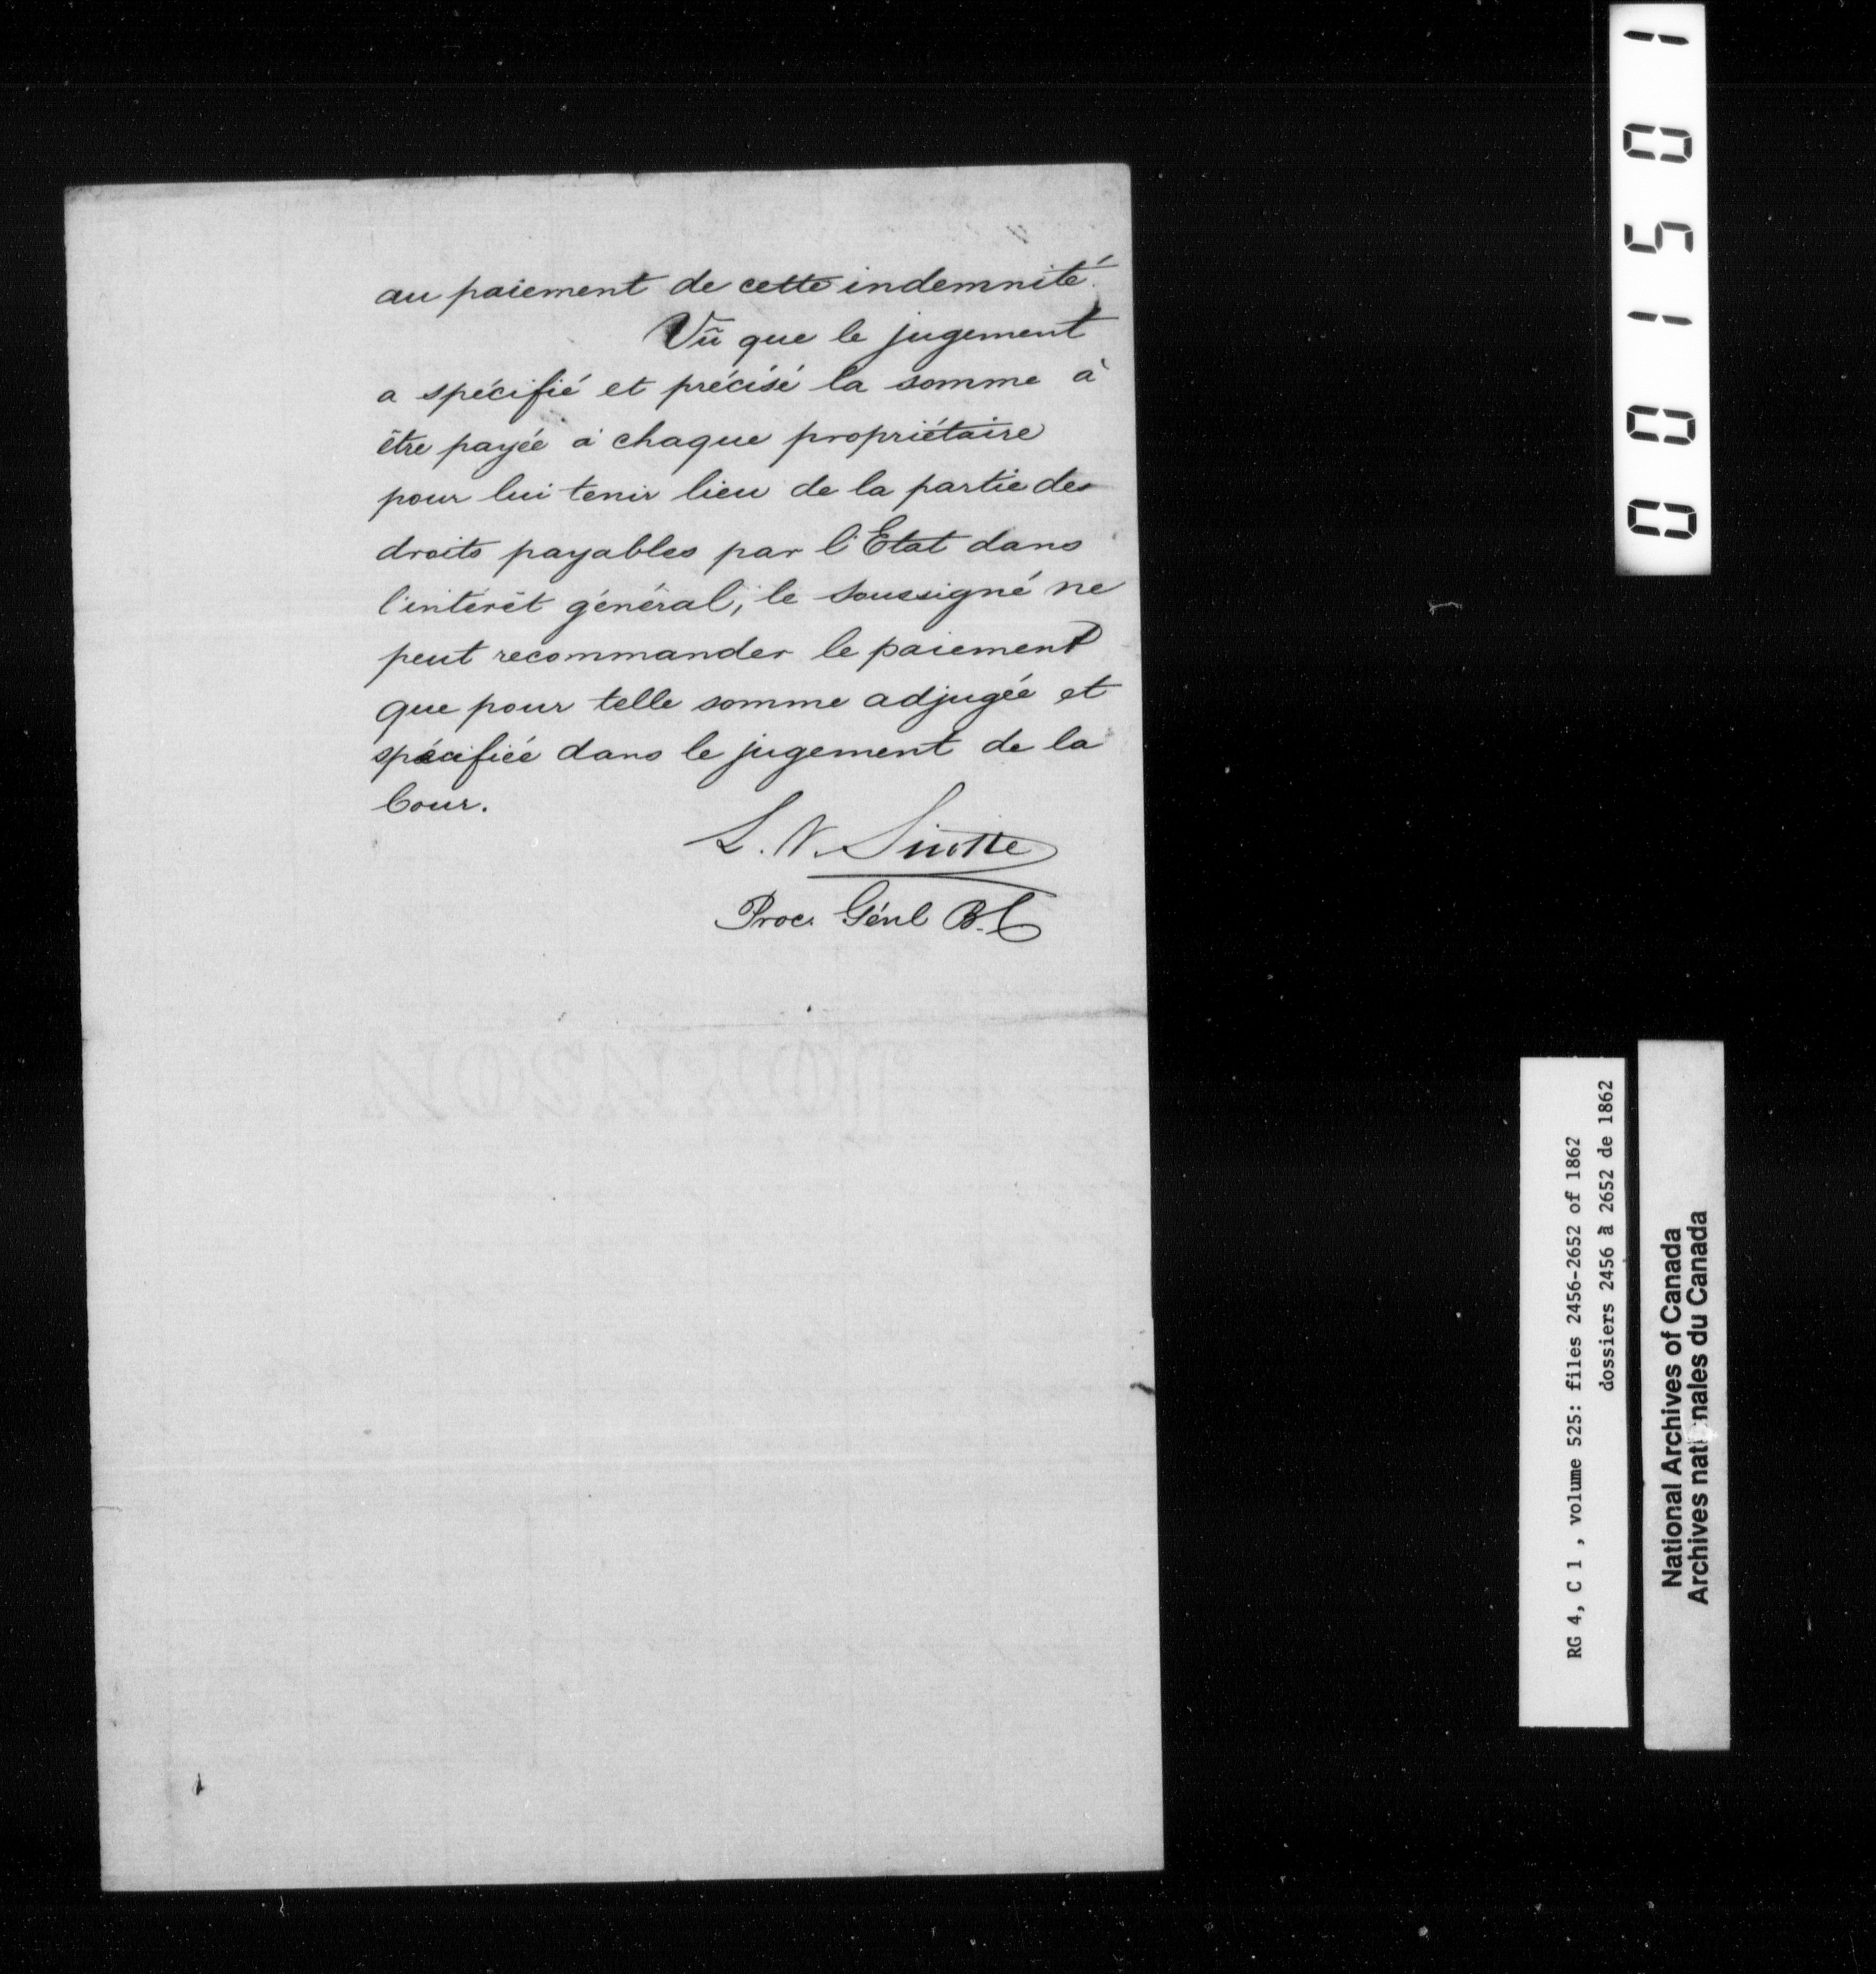 au paiement de cette indemnité.
Vû que le jugement
a spécifié et précisé la somme à
être payée à chaque propriétaire
pour lui tenir lieu de la partie des
droits payables par l'Etat dans
l'intérêt général, le soussigné ne
peut recommander le paiement
que pour telle somme adjugée et
spécifiée dans le jugement de la
Cour.
L. V. Sicotte
Proc. Génl B. C
001501
RG 4, C 1 , volume 525: files 2456-2652 of 1862
dossiers 2456 à 2652 de 1862
National Archives of Canada
Archives nationales du Canada